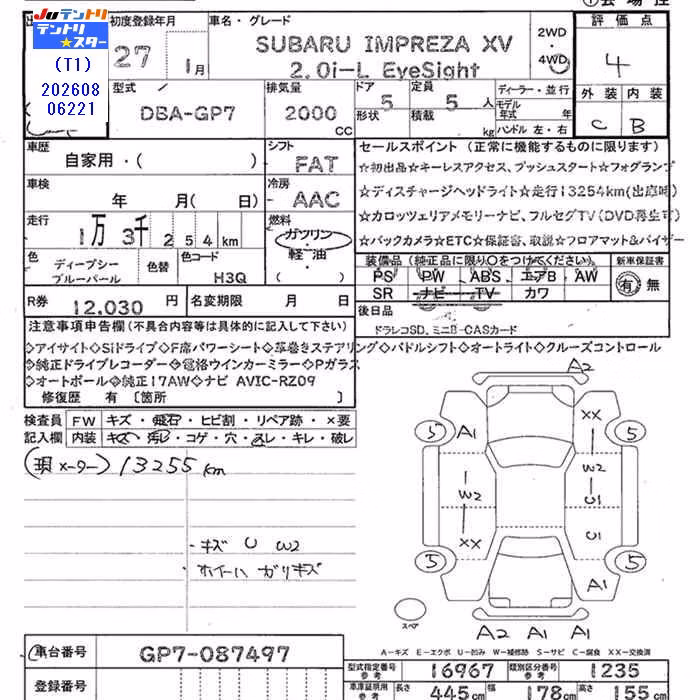 Juテントリ
テントリ★スター
(T1)
202608
06221
初度登録年月
27 1月
車名・グレード
SUBARU IMPREZA XV
2.0i-L EyeSight
2WD
・
4WD
評価点
4
外装 内装
C B
型式
DBA-GP7
排気量
2000
CC
ドア
5
形状
定員
5 人
積載
kg
ディーラー・並行
モデル
年式 年
ハンドル 左・右
車歴
自家用・( )
シフト
FAT
車検
年 月( 日)
冷房
AAC
走行
1万 3千 254 km
燃料
ガソリン
・
軽・油
( )
色
ディープシー
ブルーパール
色替
色コード
H3Q
R券
12,030 円
名変期限 月 日
セールスポイント (正常に機能するものに限ります)
☆初出品☆キーレスアクセス、プッシュスタート☆フォグランプ
☆ディスチャージヘッドライト☆走行13254km(出庫時)
☆カロッツェリアメモリーナビ、フルセグTV(DVD再生可)
☆バックカメラ☆ETC☆保証書、取説☆フロアマット&バイザー
装備品(純正品に限り○をつけてください)
新車保証書
PS PW ABS エアB AW
SR ナビ TV カワ
有 無
後日品
ドラレコSD、ミニB-CASカード
注意事項申告欄(不具合内容等は具体的に記入して下さい)
◇アイサイト◇Siドライブ◇F席パワーシート◇革巻きステアリング◇パドルシフト◇オートライト◇クルーズコントロール
◇純正ドライブレコーダー◇電格ウインカーミラー◇Pガラス
◇オートポール◇純正17AW◇ナビ AVIC-RZ09
修復歴 有〔箇所 〕
検査員
記入欄
FW キズ・飛石・ヒビ割・リペア跡・×要
内装 キズ・汚レ・コゲ・穴・スレ・キレ・破レ
(現メーター) 13255km
・キズ U W2
・ホイール ガリキズ
A2
5 A1 XX 5
W2 W2
U1
XX U1
5 5
A1
スペア
A2 A1 A1
A-キズ E-エクボ U-凹み W-補修跡 S-サビ C-腐食 XX-交換済
車台番号
GP7-087497
登録番号
型式指定番号
参考
16967
類別区分番号
参考
1235
車庫証明用
参考
長さ
445cm
幅
178cm
高さ
155cm